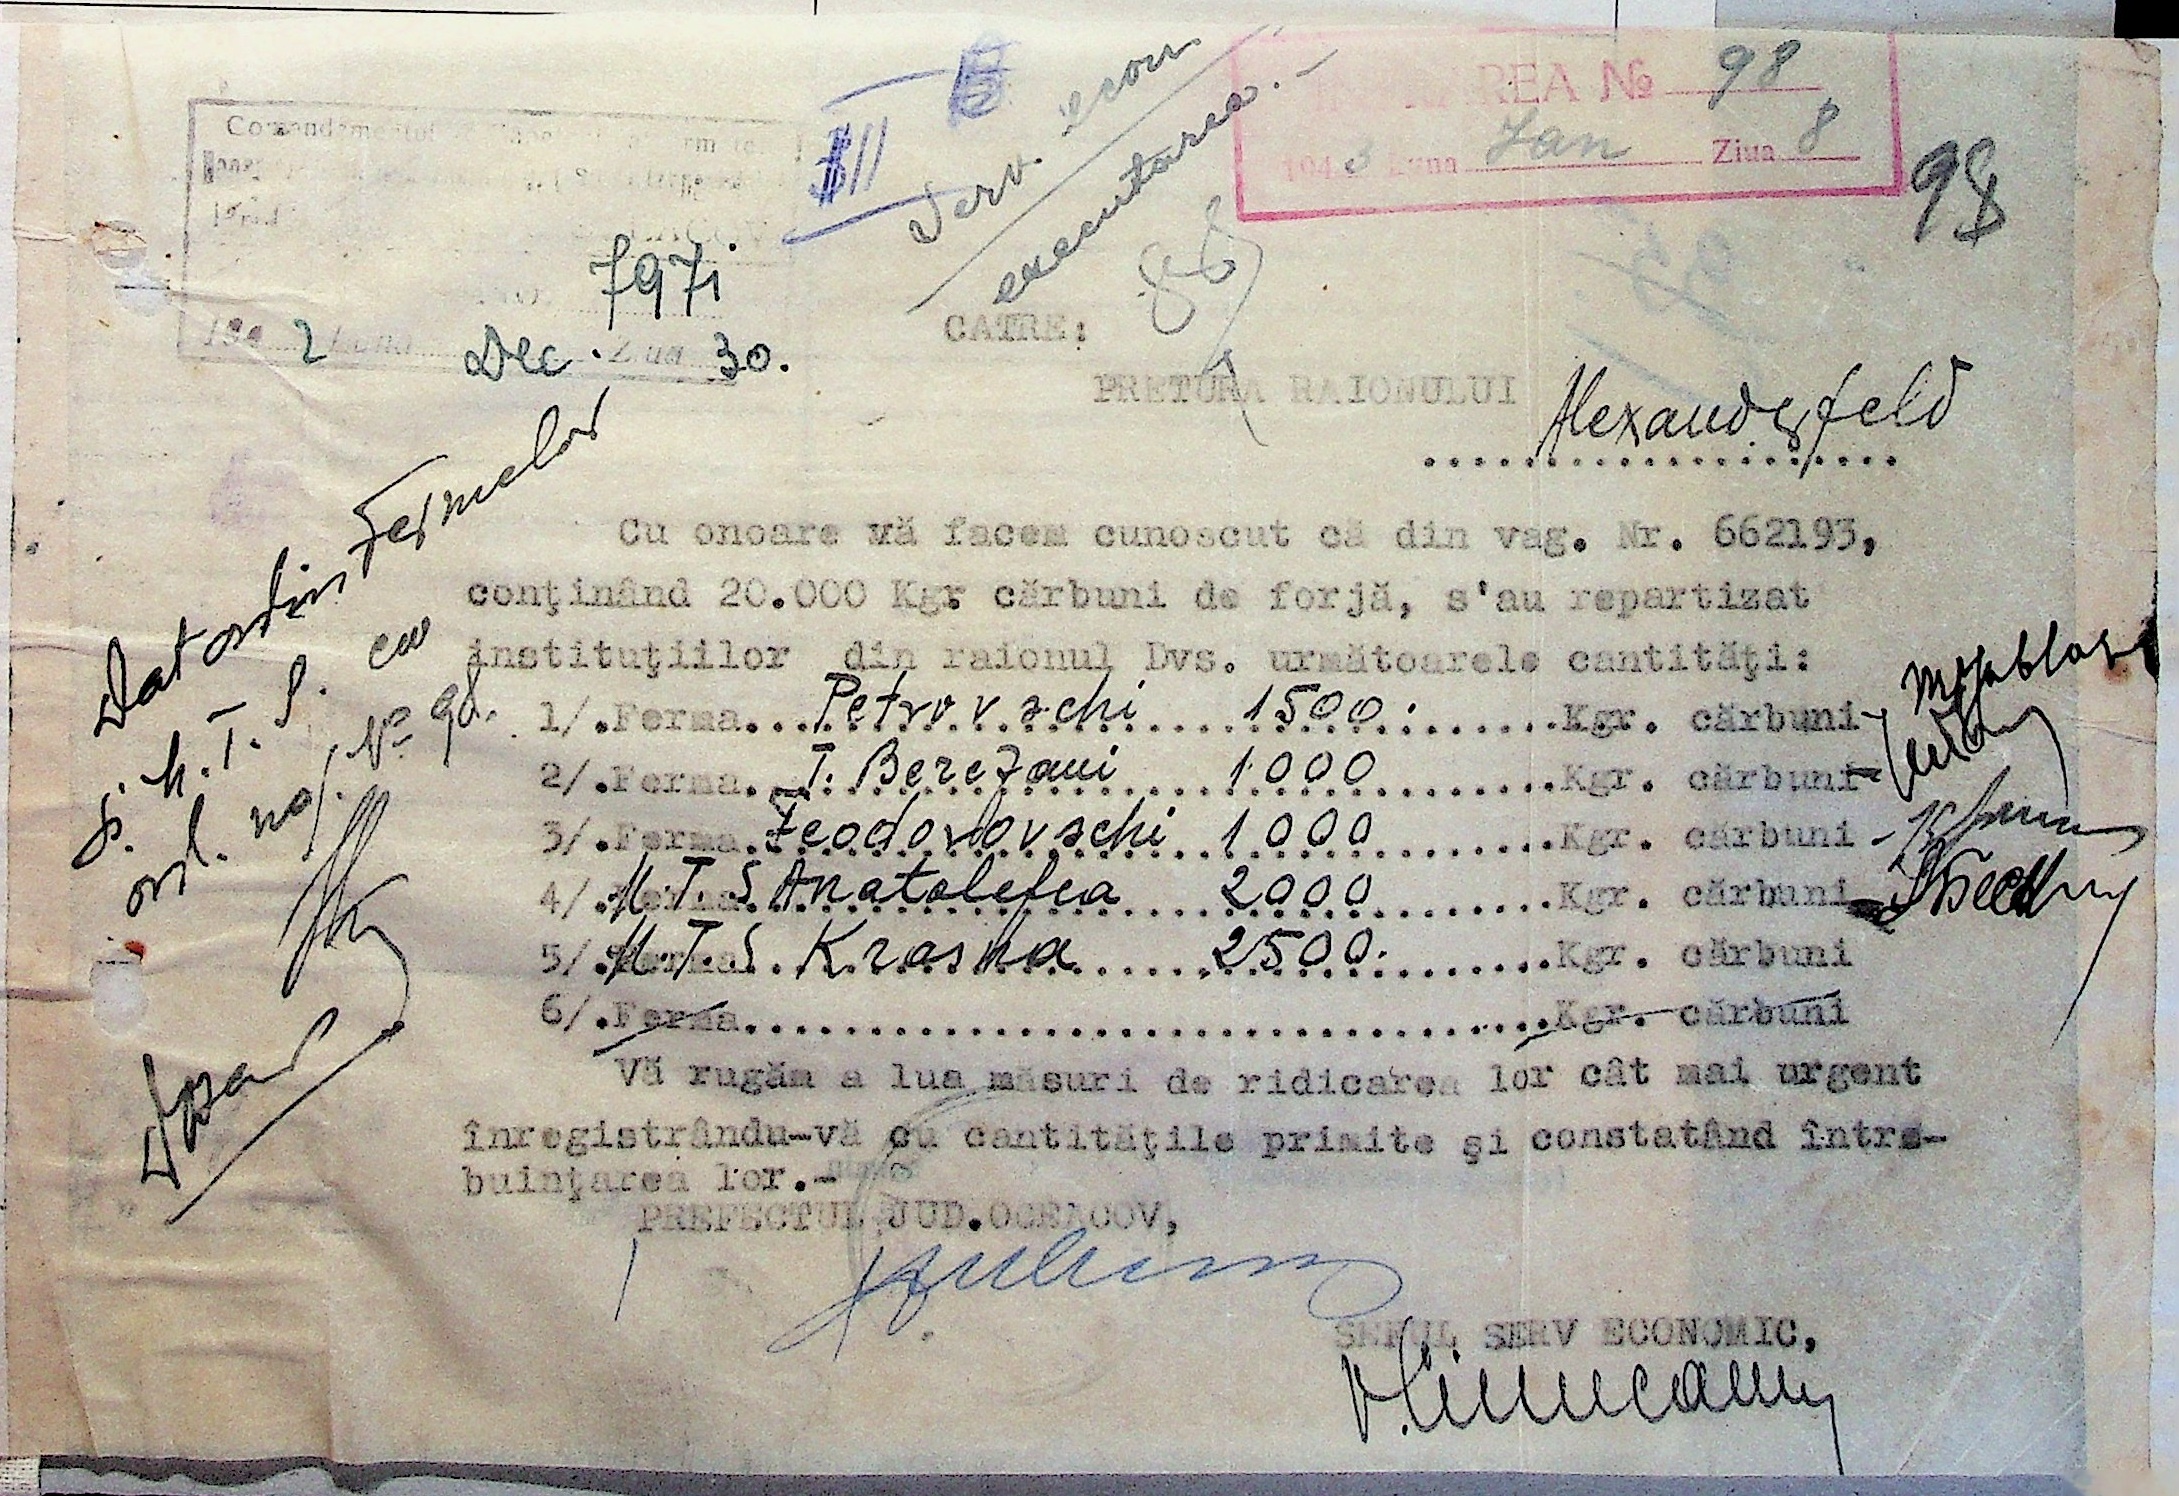 Comandamentul
7971
194 2 Luna Dec. Ziua 30.
III
Serv. econ
executarea.-
No 98
194 3 Luna Jan Ziua 8
98
CATRE:
PRETURA RAIONULUI
Alexanderfeld
Cu onoare vă facem cunoscut că din vag. Nr. 662193,
conţinând 20.000 Kgr cărbuni de forjă, s'au repartizat
instituţiilor din raionul Dvs. următoarele cantităţi:
1/.Ferma...Petrovschi 1500.......Kgr. cărbuni
2/.Ferma. T. Berezani 1000.......Kgr. cărbuni
3/.Ferma.Feodorovschi 1000.......Kgr. cărbuni
4/.M.T.S Anatolefca 2000.......Kgr. cărbuni
5/.M.T.S. Krasna 2500.......Kgr. cărbuni
6/.Ferma................................Kgr. cărbuni
Vă rugăm a lua măsuri de ridicarea lor cât mai urgent
înregistrându-vă cu cantităţile primite şi constatând între-
buinţarea lor.-
PREFECTUL JUD.OCEACOV,
SEFUL SERV ECONOMIC,
Dat ordin Fermelor
şi M.T.S. cu
ord. No 98.
Dosar